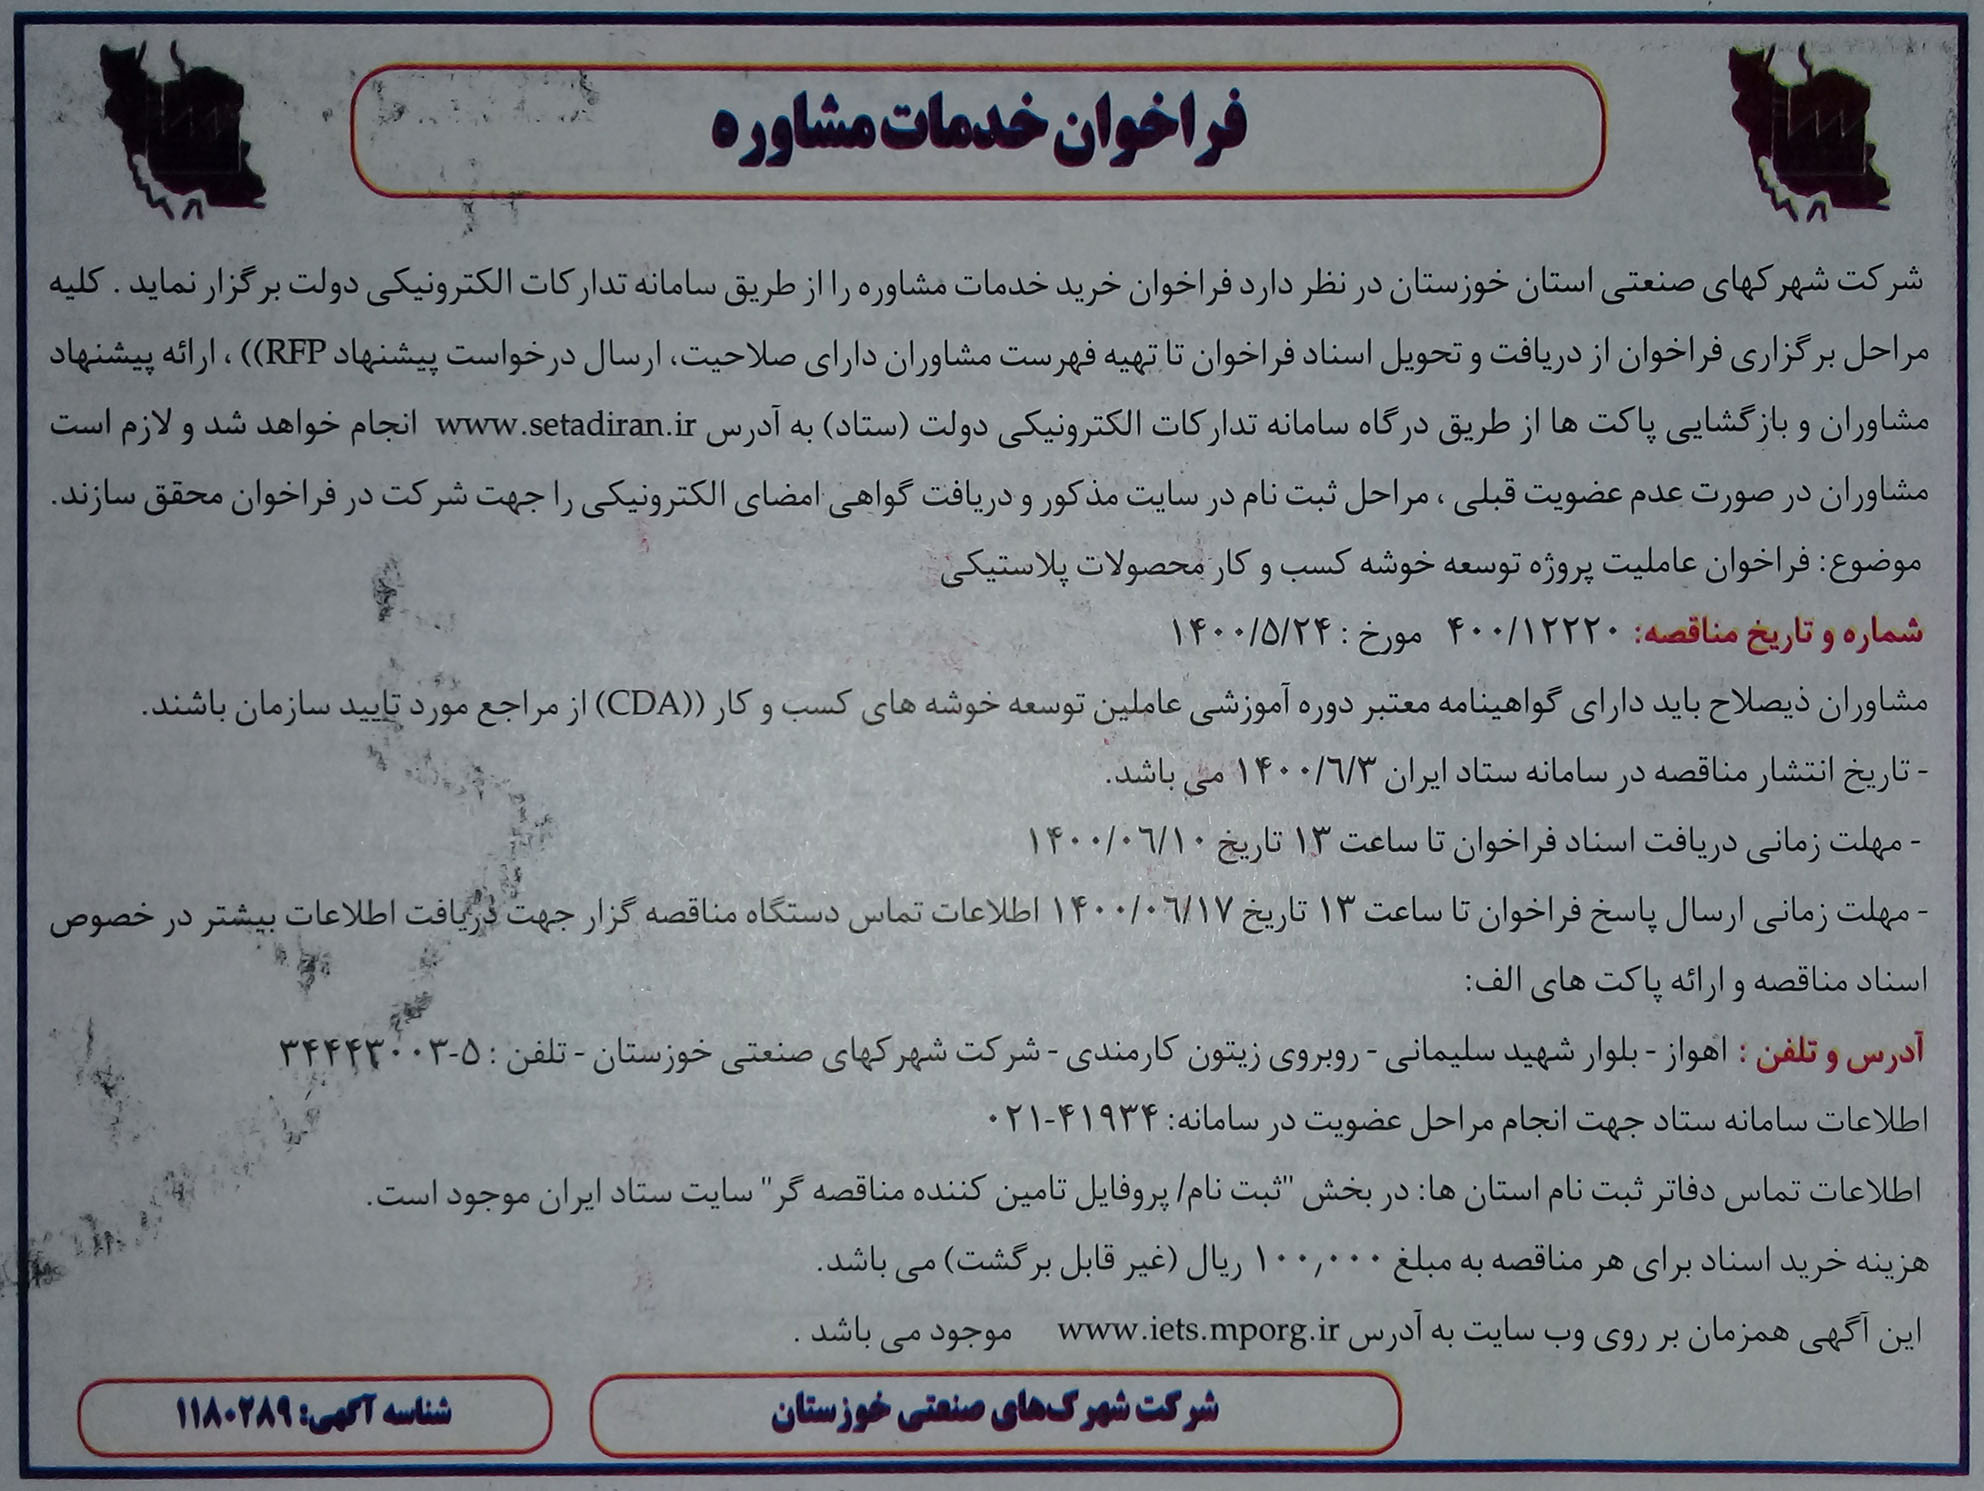 فراخوان خدمات مشاوره
شرکت شهرکهای صنعتی استان خوزستان در نظر دارد فراخوان خرید خدمات مشاوره را از طریق سامانه تدارکات الکترونیکی دولت برگزار نماید . کلیه
مراحل برگزاری فراخوان از دریافت و تحویل اسناد فراخوان تا تهیه فهرست مشاوران دارای صلاحیت، ارسال درخواست پیشنهاد RFP)) ، ارائه پیشنهاد
مشاوران و بازگشایی پاکت ها از طریق درگاه سامانه تدارکات الکترونیکی دولت (ستاد) به آدرس www.setadiran.ir انجام خواهد شد و لازم است
مشاوران در صورت عدم عضویت قبلی ، مراحل ثبت نام در سایت مذکور و دریافت گواهی امضای الکترونیکی را جهت شرکت در فراخوان محقق سازند.
موضوع: فراخوان عاملیت پروژه توسعه خوشه کسب و کار محصولات پلاستیکی
شماره و تاریخ مناقصه: ۴۰۰/۱۲۲۲۰ مورخ : ۱۴۰۰/۵/۲۴
مشاوران ذیصلاح باید دارای گواهینامه معتبر دوره آموزشی عاملین توسعه خوشه های کسب و کار ((CDA) از مراجع مورد تایید سازمان باشند.
- تاریخ انتشار مناقصه در سامانه ستاد ایران ۱۴۰۰/۶/۳ می باشد.
- مهلت زمانی دریافت اسناد فراخوان تا ساعت ۱۳ تاریخ ۱۴۰۰/۰۶/۱۰
- مهلت زمانی ارسال پاسخ فراخوان تا ساعت ۱۳ تاریخ ۱۴۰۰/۰۶/۱۷ اطلاعات تماس دستگاه مناقصه گزار جهت دریافت اطلاعات بیشتر در خصوص
اسناد مناقصه و ارائه پاکت های الف:
آدرس و تلفن : اهواز - بلوار شهید سلیمانی - روبروی زیتون کارمندی - شرکت شهرکهای صنعتی خوزستان - تلفن : ۵-۳۴۴۴۳۰۰۳
اطلاعات سامانه ستاد جهت انجام مراحل عضویت در سامانه: ۴۱۹۳۴-۰۲۱
اطلاعات تماس دفاتر ثبت نام استان ها: در بخش "ثبت نام/ پروفایل تامین کننده مناقصه گر" سایت ستاد ایران موجود است.
هزینه خرید اسناد برای هر مناقصه به مبلغ ۱۰۰,۰۰۰ ریال (غیر قابل برگشت) می باشد.
این آگهی همزمان بر روی وب سایت به آدرس www.iets.mporg.ir موجود می باشد .
شرکت شهرک‌های صنعتی خوزستان
شناسه آگهی: ۱۱۸۰۲۸۹